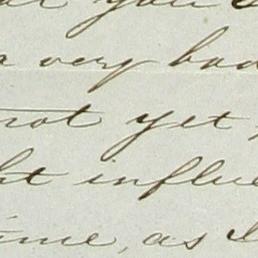 you
a very bad
not yet
ht influe
ime, as I